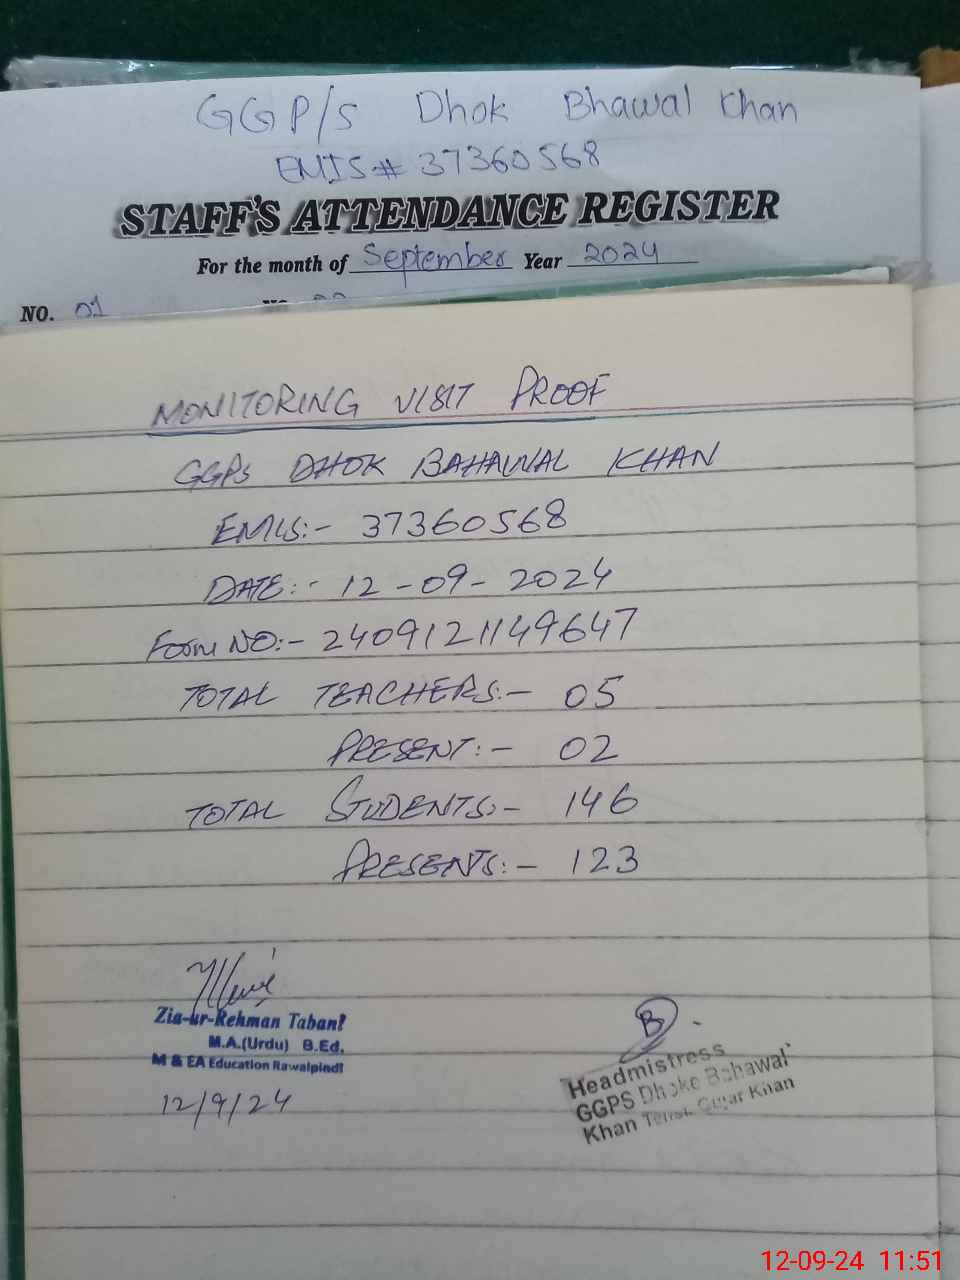 GGP/S Dhok Bhawal Khan
EMIS# 37360568
STAFF'S ATTENDANCE REGISTER
For the month of September Year 2024
NO. 01
MONITORING VISIT PROOF
GGPS DHOK BAHAWAL KHAN
EMIS:- 37360568
DATE:- 12-09-2024
Form NO:- 2409121149647
TOTAL TEACHERS:- 05
PRESENT:- 02
TOTAL STUDENTS:- 146
PRESENTS:- 123
Zia-ur-Rehman Tabani
M.A.(Urdu) B.Ed.
M & EA Education Rawalpindi
12/9/24
Headmistress
GGPS Dhoke Bahawal
Khan Gujar Khan
12-09-24 11:51